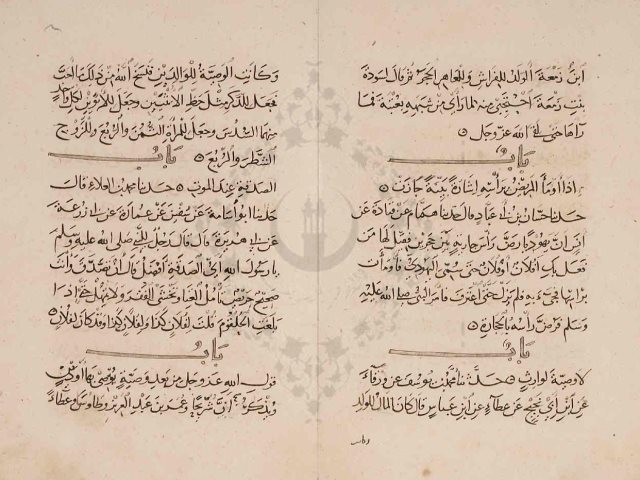 ابن زمعة الولد للفراش وللعاهر الحجر ثم قال لسودة
بنت زمعة احتجبي منه لما رأى من شبهه بعتبة فما
رآها حتى لقي الله عز وجل
باب
اذا اومأ المريض برأسه اشارة بينة جازت
حدثنا حسان بن ابي عباد قال حدثنا همام عن قتادة عن
انس ان يهوديا رض رأس جارية بين حجرين فقيل لها من
فعل بك افلان او فلان حتى سمي اليهودي فاومأت
برأسها فجيء به فلم يزل حتى اعترف فامر النبي صلى الله عليه
وسلم فرض رأسه بالحجارة
باب
لا وصية لوارث حدثنا محمد بن يوسف عن ورقاء
عن ابن ابي نجيح عن عطاء عن ابن عباس قال كان المال للولد
وكانت
وكانت الوصية للوالدين فنسخ الله من ذلك ما احب
فجعل للذكر مثل حظ الانثيين وجعل للابوين لكل واحد
منهما السدس وجعل للمرأة الثمن والربع وللزوج
الشطر والربع باب
الصدقة عند الموت حدثنا محمد بن العلاء قال
حدثنا ابو اسامة عن سفين عن عمارة عن ابي زرعة
عن ابي هريرة قال قال رجل للنبي صلى الله عليه وسلم
يا رسول الله اي الصدقة افضل قال ان تصدق وانت
صحيح حريص تأمل الغنا وتخشى الفقر ولا تمهل حتى اذا
بلغت الحلقوم قلت لفلان كذا ولفلان كذا وقد كان لفلان
باب
قول الله عز وجل من بعد وصية يوصى بها او دين
ويذكر ان شريحا وعمر بن عبد العزيز وطاوس وعطاء